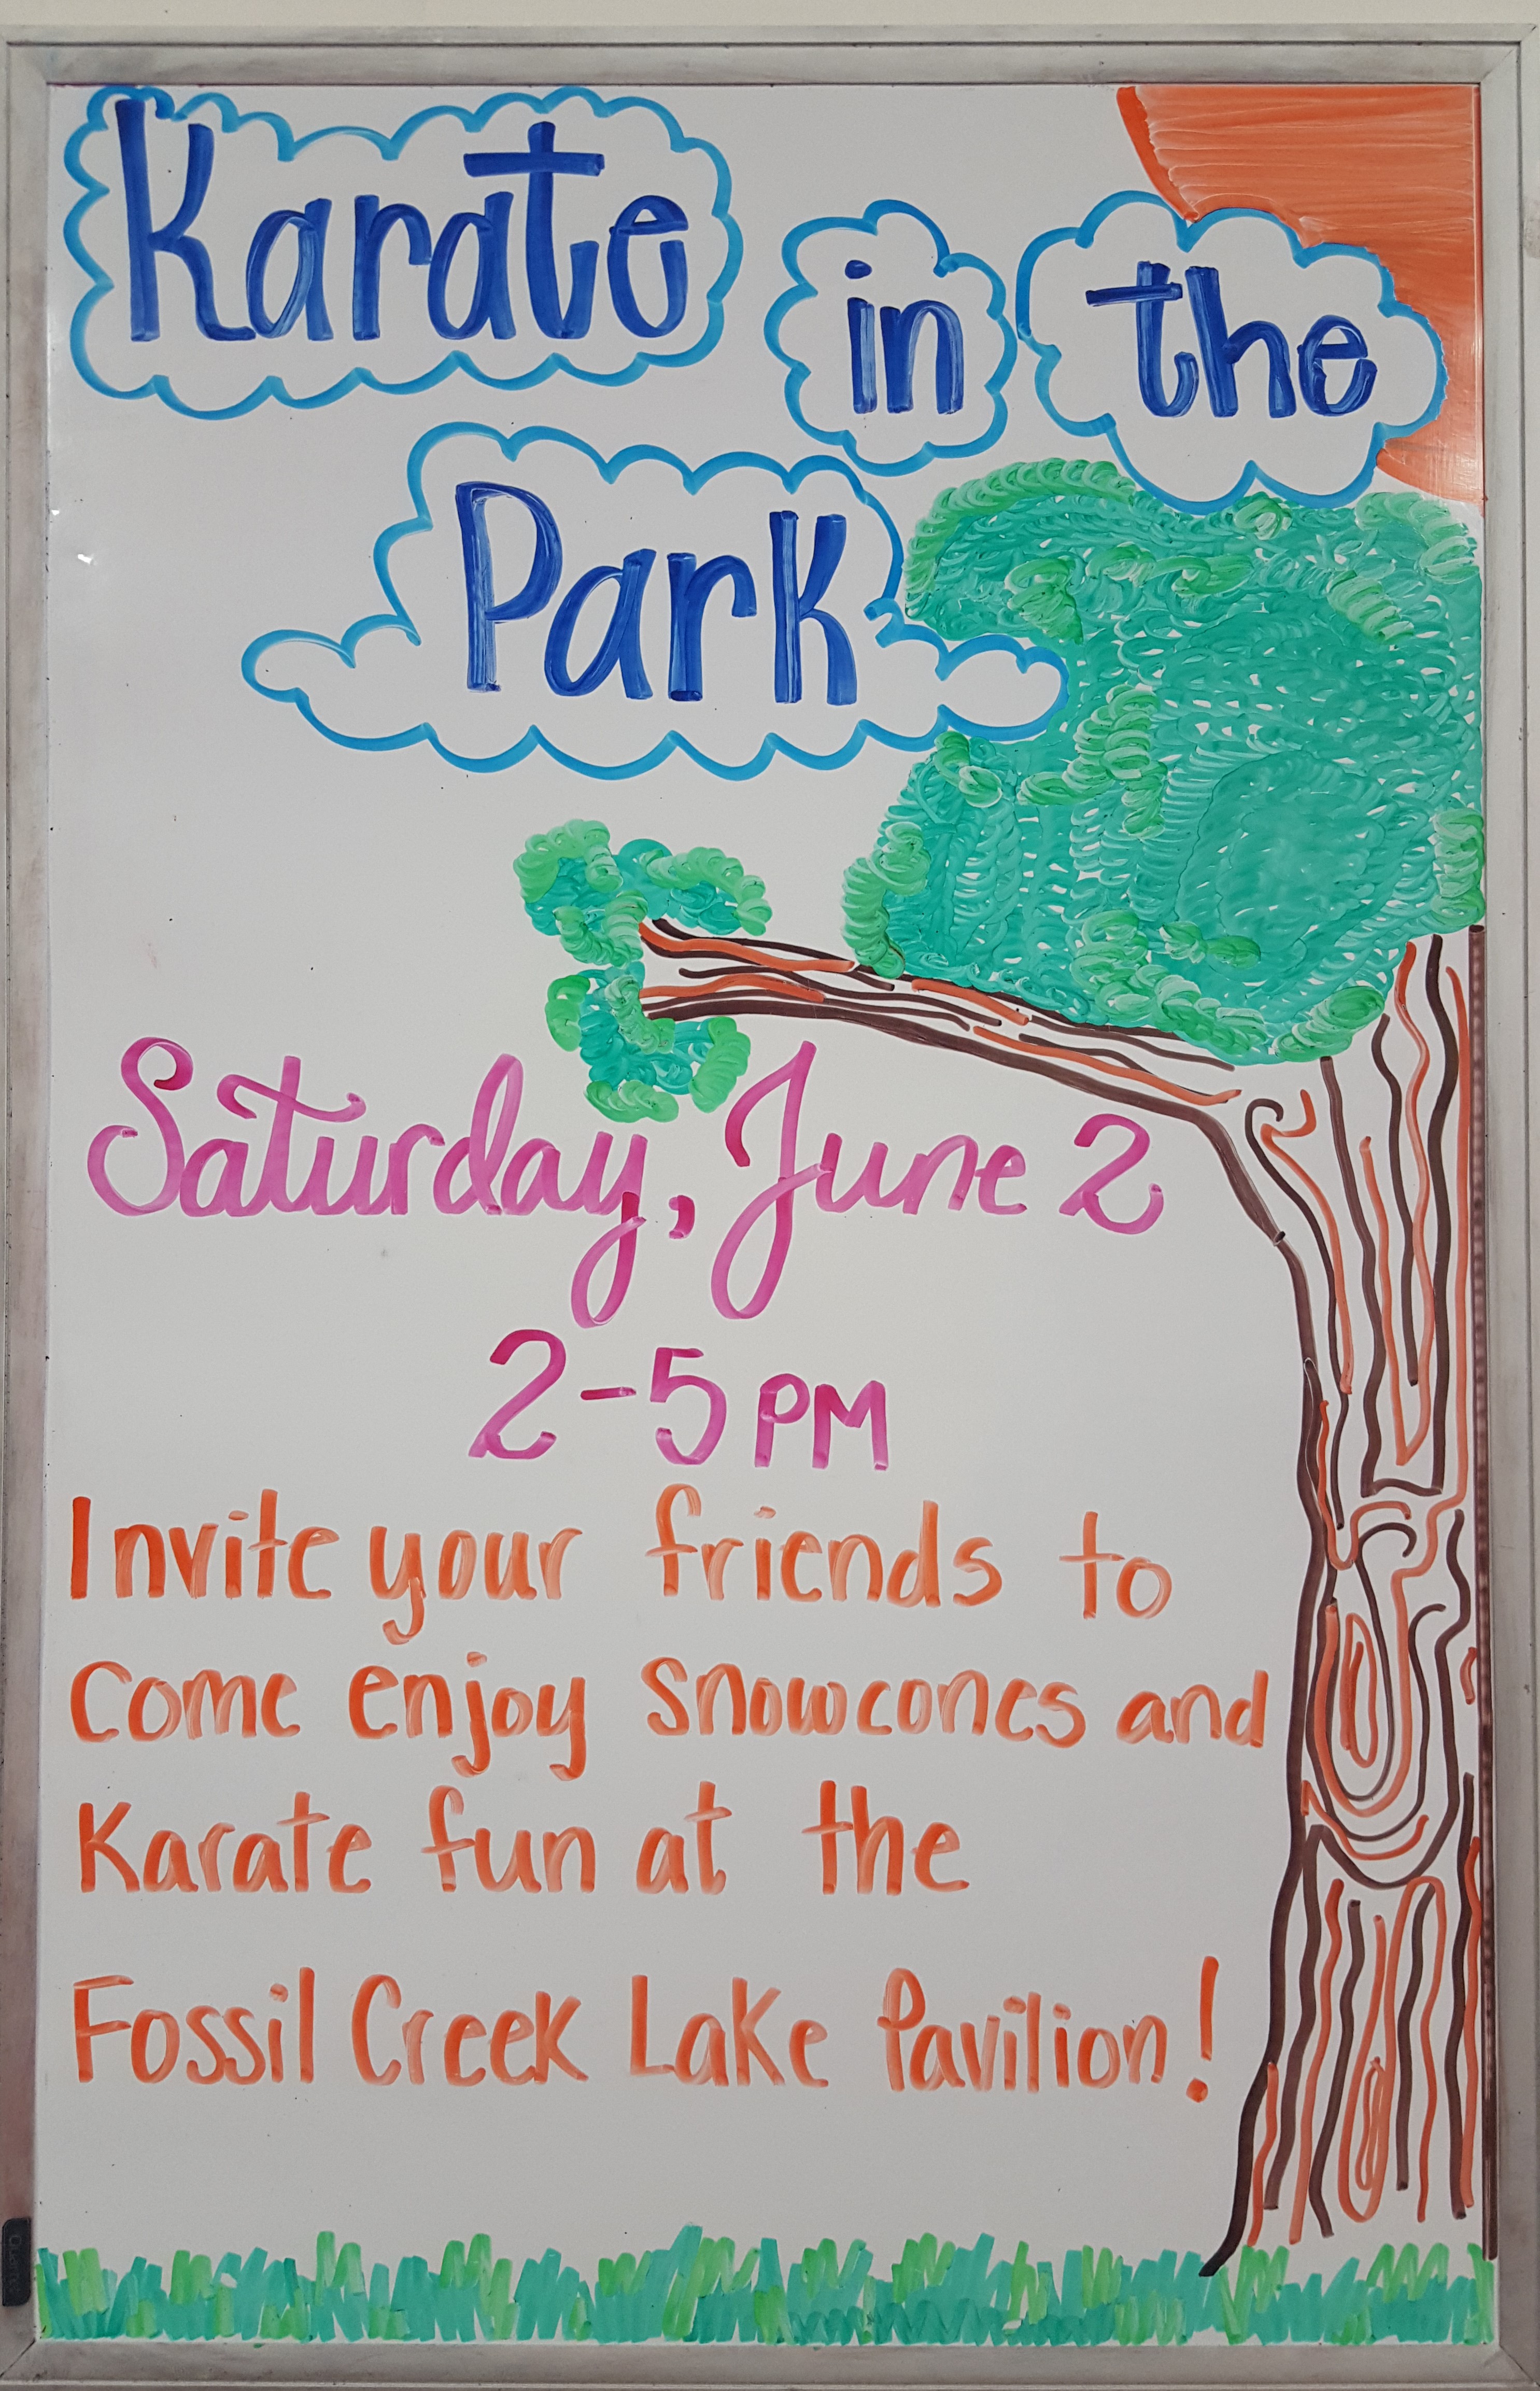 Karate in the
Park
Saturday, June 2
2-5 PM
Invite your friends to
Come enjoy Snowcones and
Karate fun at the
Fossil Creek Lake Pavilion!